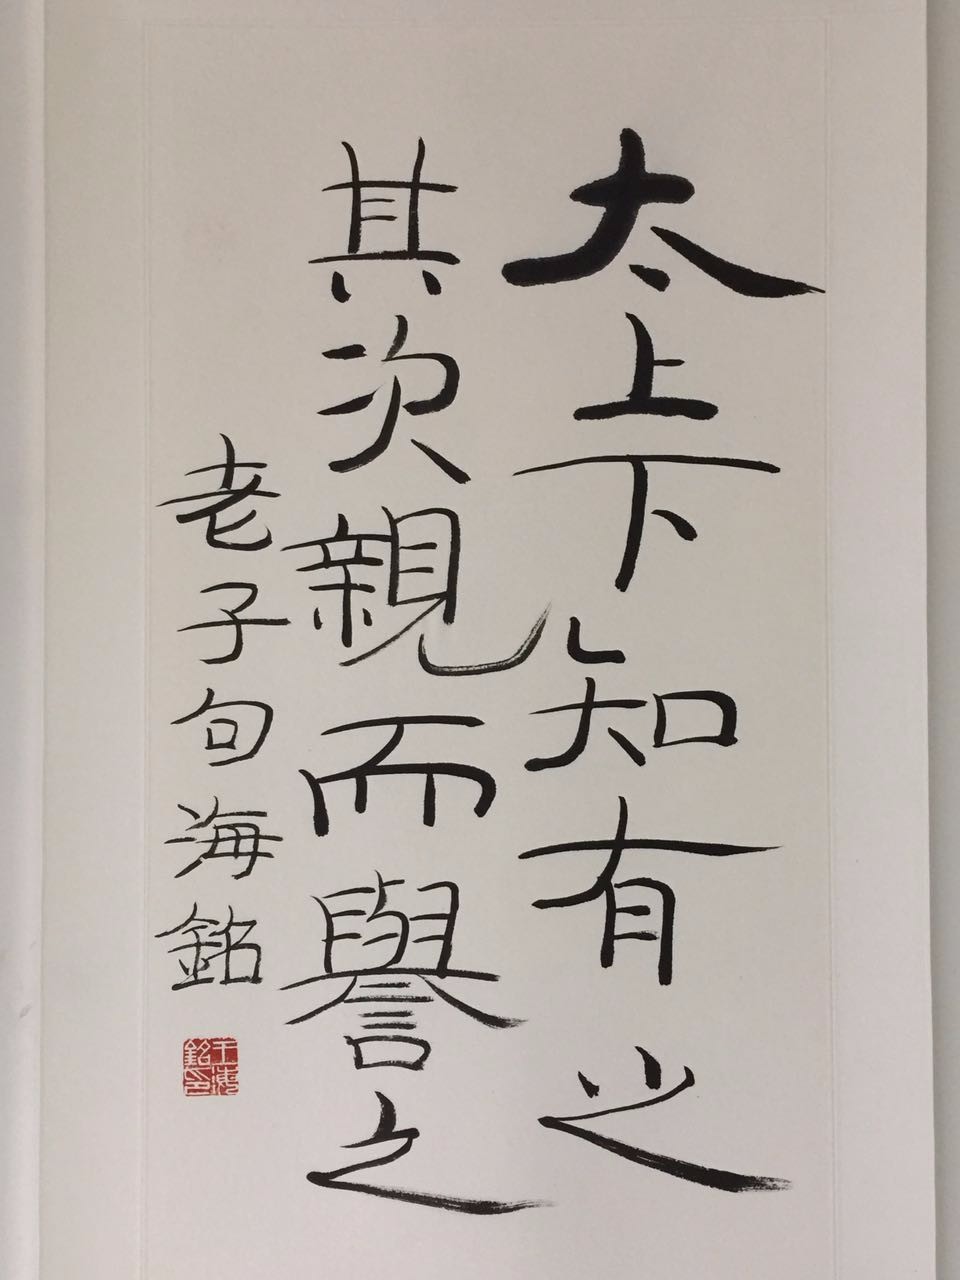 太上下知有之
其次親而譽之
老子句海銘
王海銘印